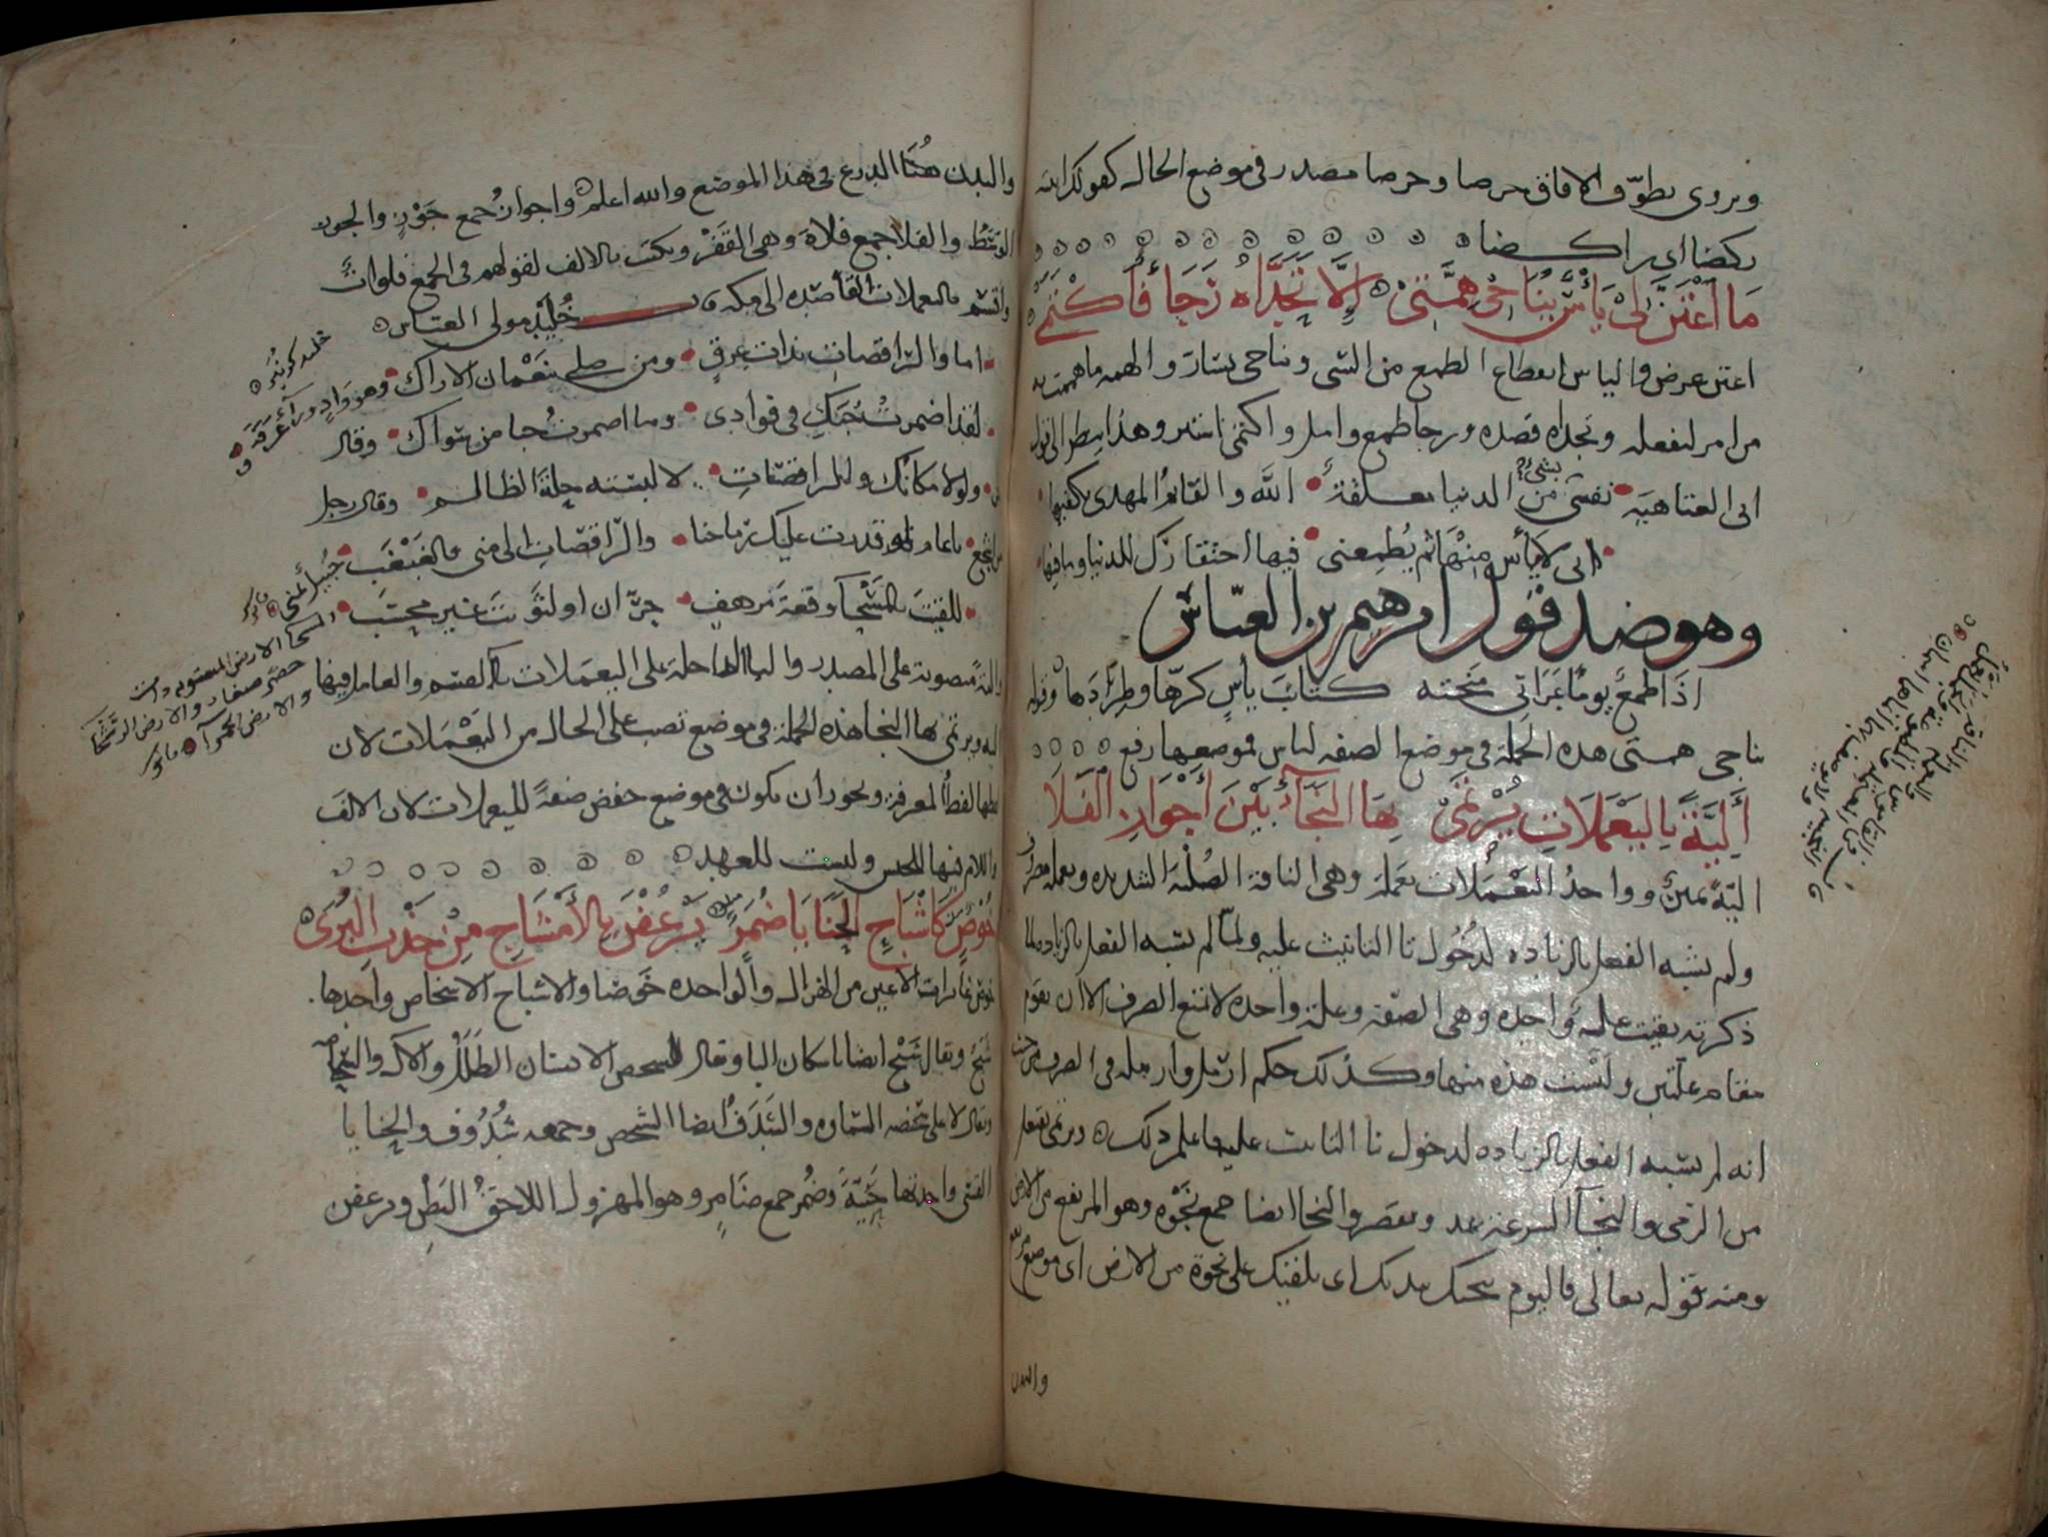 ويروى يطوف الافاق حرصا وحرصا مصدر في موضع الحال كقولك اتيته
ركضا اي راكضا
مَا اعْتَنَّ لِيْ يَأْسٌ يُنَاجِي هِمَّتِيْ إِلَّا تَحَدَّاهُ رَجَاءٌ فَاكْتَمَىْ
اعتن عرض والياس انقطاع الطمع من الشي ويناجي يسار والهمه ما هممت به
من امر لتفعله وتحداه قصده ورجا طمع وامل واكتمى استتر وهذا ينظر الى قول
ابي العتاهيه نفسي بشيء من الدنيا معلقة الله والقائم المهدي يكفيها
اني لايأس منها ثم يطمعني فيها احتقارك للدنيا وما فيها
وهو ضد قول ابرهيم بن العباس
اذا طمع يوما عراني منحته كتائب يأس كرها وطرادها وقوله
يناجي همتي هذه الجملة في موضع الصفه لياس فموضعها رفع
أَلِيَّةً بِاليَعْمَلَاتِ يَرْتَمِيْ بِهَا النَّجَاءُ بَيْنَ أَجْوَازِ الْفَلَا
اليّة يمين وواحد اليعملات يعملة وهي الناقة الصلبة الشديده ويعمله مصروف
ولم يشبه الفعل بالزياده لدخول تا التانيث عليه ولما لم يشبه الفعل بالزياده لما
ذكرته بقيت علة واحده وهي الصفة وعلة واحده لا تمنع الصرف الا ان تقوم
مقام علتين وليست هذه منها وكذلك حكم ارمل وارمله في الصرف من حيث
انه لم يشبه الفعل بالزياده لدخول تا التانيث عليها فاعلم ذلك ويرتمي يفتعل
من الرمي والنجآ السرعة يمد ويقصر والنجا ايضا جمع نجوه وهو المرتفع من الارض
ومنه قوله تعالى فاليوم ننجيك ببدنك اي نلقيك على نجوة من الارض اي موضع مرتفع
والبدن
والبدن هُنَا الدرع في هذا الموضع والله اعلم واجواز جمع جَوْزٍ والجوز
الوسط والفلا جمع فلاة وهي القَفْر ويكتب بالالف لقولهم في الجمع فلوات
واقسم باليعملات القاصده الى مكه قال خُلَيْد مولى العباس
اما والراقصاتِ بذات عرقٍ ومن صلى بنَعْمان الاراك وهو وادٍ ورآ عَرَفَة
لقد اضمرت حبكِ في فوادي وما اضمرت حبا من سواك وقال
ولولا مكانك والراقصاتِ لالبسته حلة الظالم وقال رجل
من اشجع ياعام لو قدرت عليك رماحنا والراقصاتِ الى منى فالغبغب
للقيت بالسحآ وقعة مرهفٍ حران او لثويت غير محسب
والية منصوبة على المصدر والبا الداخلة على اليعملات بآ القسم والعامل فيها
اليه ويرتمي بها النجا هذه الجملة في موضع نصب على الحال من اليَعْمَلات لان
لفظها لفظ المعرفة ويجوز ان يكون في موضع خفض صفةً لليعملات لان الالف
واللام فيها للجنس وليست للعهد
خُوْصٌ كَأَشْبَاحِ الحَنَايَا ضُمَّرٌ يَرْعُفْنَ بِالأَمْشَاجِ مِنْ جَذْبِ البُرَىْ
خوص غايرات الاعين من الهزال والواحده خوصا والاشباح الاشخاص واحدها
شبح ويقال شَبْح ايضا باسكان البا ويقال لشخص الانسان الطَلَل والآل والسَّمَامَه
ويقال لاعلى شخصه السماوه والشَدَف ايضا الشخص وجمعه شُدُوف والحنايا
القسي واحدتها حَنِيَّة وضُمَّر جمع ضامر وهو المهزول اللاحق البَطن ويرعفن